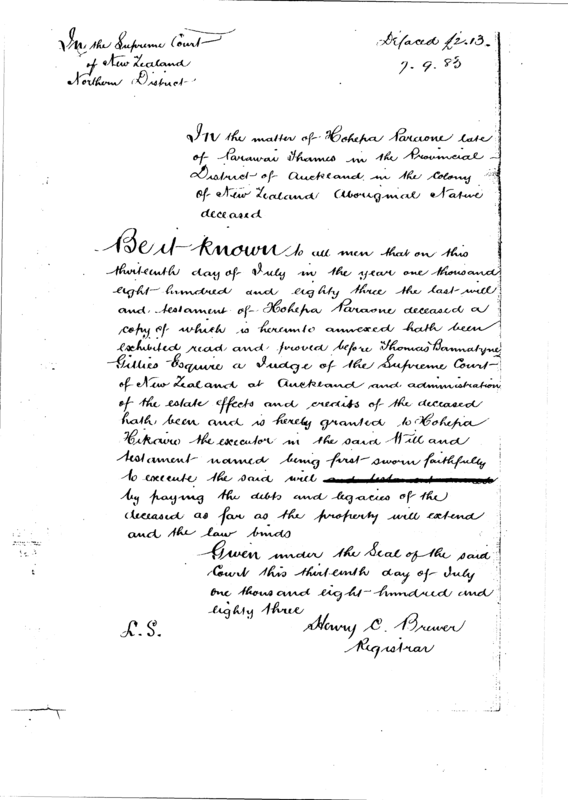 In the Supreme Court
of New Zealand
Northern District
Defaced £2.13.
7.9.83
In the matter of Hohepa Paraone late
of Parawai Thames in the Provincial
District of Auckland in the Colony
of New Zealand Aboriginal Native
deceased
Be it known to all men that on this
thirteenth day of July in the year one thousand
eight hundred and eighty three the last will
and testament of Hohepa Paraone deceased a
copy of which is hereunto annexed hath been
exhibited read and proved before Thomas Bannatyne
Gillies Esquire a Judge of the Supreme Court
of New Zealand at Auckland and administration
of the estate effects and credits of the deceased
hath been and is hereby granted to Hohepa
Hikairo the executor in the said Will and
testament named being first sworn faithfully
to execute the said will
by paying the debts and legacies of the
deceased as far as the property will extend
and the law binds
Given under the Seal of the said
Court this thirteenth day of July
one thousand eight hundred and
eighty three
L.S.
Henry C. Brewer
Registrar